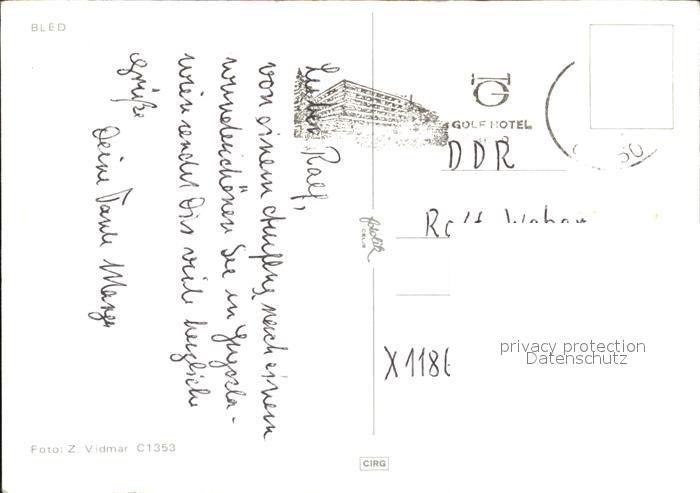 BLED
Lieber Ralf,
von einem Ausflug nach einem
wunderschönen See in Jugosla-
wien sendet Dir viele herzliche
Grüße
Deine Tante
GOLF HOTEL
DDR
Ralf
X1186
fotolik
CELJE
privacy protection
Datenschutz
Foto: Z. Vidmar C1353
CIRG